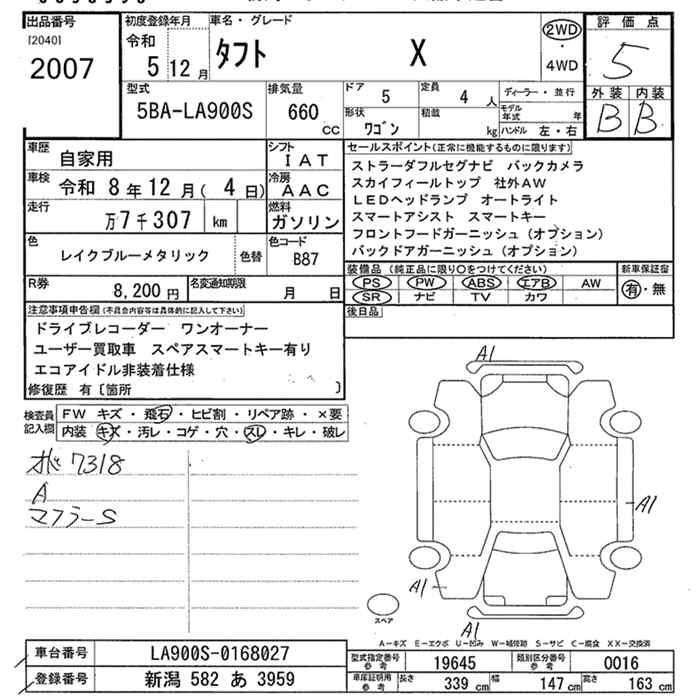 出品番号
[2040]
2007
初度登録年月
令和
5 12 月
車名・グレード
タフト X
2WD
・
4WD
評 価 点
5
外装 内装
B B
型式
5BA-LA900S
排気量
660
CC
ドア
5
定員
4 人
形状
ワゴン
積載
kg
ディーラー・並行
モデル年式 年
ハンドル 左・右
車歴
自家用
シフト
I A T
車検
令和 8 年 12 月 ( 4 日)
冷房
A A C
走行
万 7 千 307 km
燃料
ガソリン
色
レイクブルーメタリック
色替
色コード
B87
R券
8,200 円
名変通知期限
月 日
セールスポイント(正常に機能するものに限ります)
ストラーダフルセグナビ バックカメラ
スカイフィールトップ 社外AW
LEDヘッドランプ オートライト
スマートアシスト スマートキー
フロントフードガーニッシュ(オプション)
バックドアガーニッシュ(オプション)
装備品 (純正品に限り○をつけてください)
PS PW ABS エアB AW
SR ナビ TV カワ
新車保証書
有・無
後日品
注意事項申告欄(不具合内容等は具体的に記入して下さい)
ドライブレコーダー ワンオーナー
ユーザー買取車 スペアスマートキー有り
エコアイドル非装着仕様
修復歴 有〔箇所 〕
検査員記入欄
FW キズ・飛石・ヒビ割・リペア跡・×要
内装 キズ・汚レ・コゲ・穴・スレ・キレ・破レ
7318
A
マフラーS
A1
A1
A1
A1
スペア
A-キズ E-エクボ U-凹み W-補修跡 S-サビ C-腐食 XX-交換済
車台番号
LA900S-0168027
登録番号
新潟 582 あ 3959
型式指定番号 参考
19645
類別区分番号 参考
0016
車庫証明用 参考
長さ 339 cm 幅 147 cm 高さ 163 cm